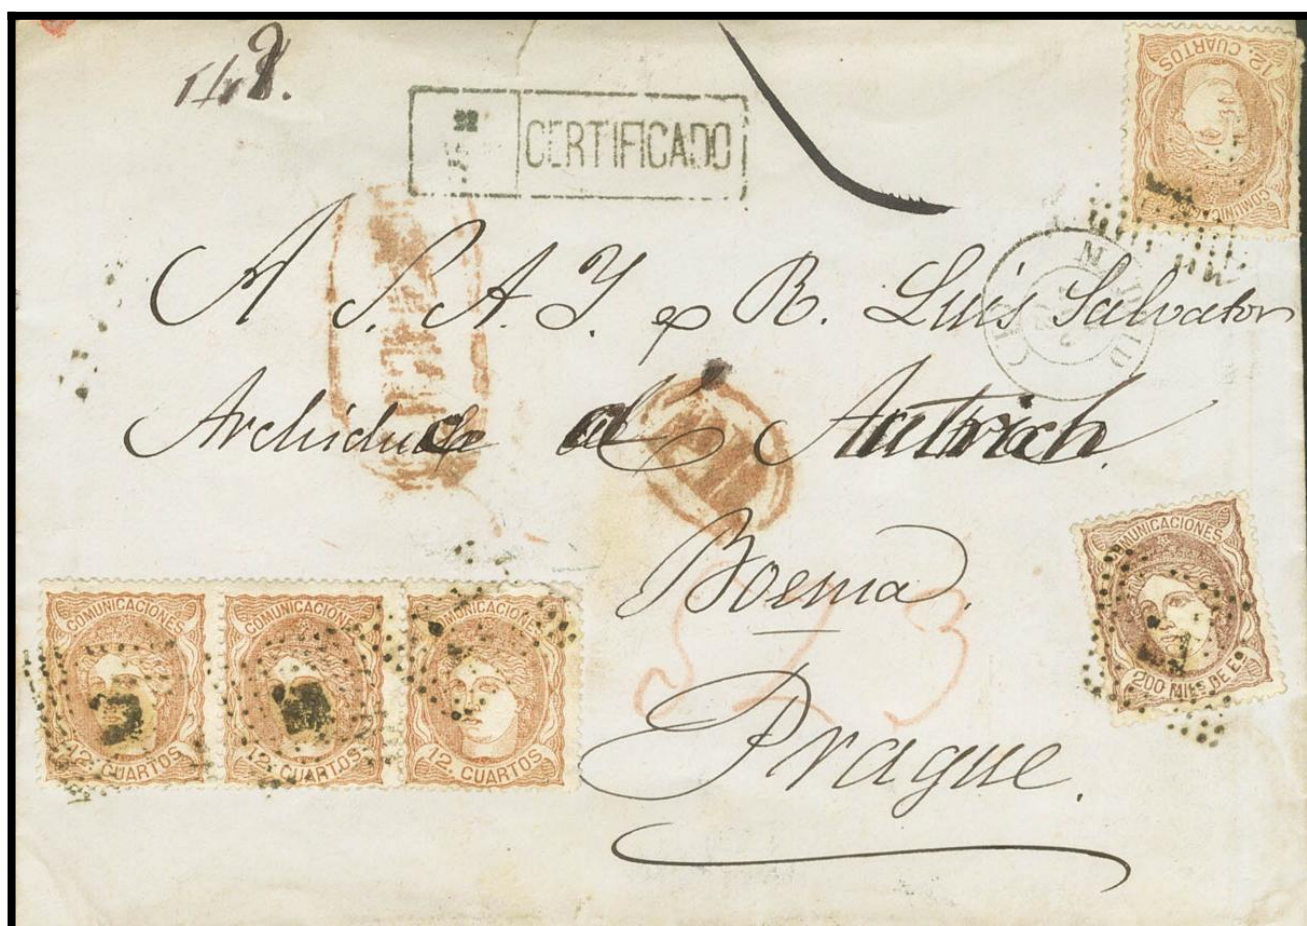 148.
CERTIFICADO
12. CUARTOS
COMUNICACIONES
MADRID
A S. A. Y. y R. Luis Salvator
Archiduc d' Autrich.
Boema.
Prague.
COMUNICACIONES
200 MILS DE Eº
COMUNICACIONES
12. CUARTOS
COMUNICACIONES
12. CUARTOS
COMUNICACIONES
12. CUARTOS